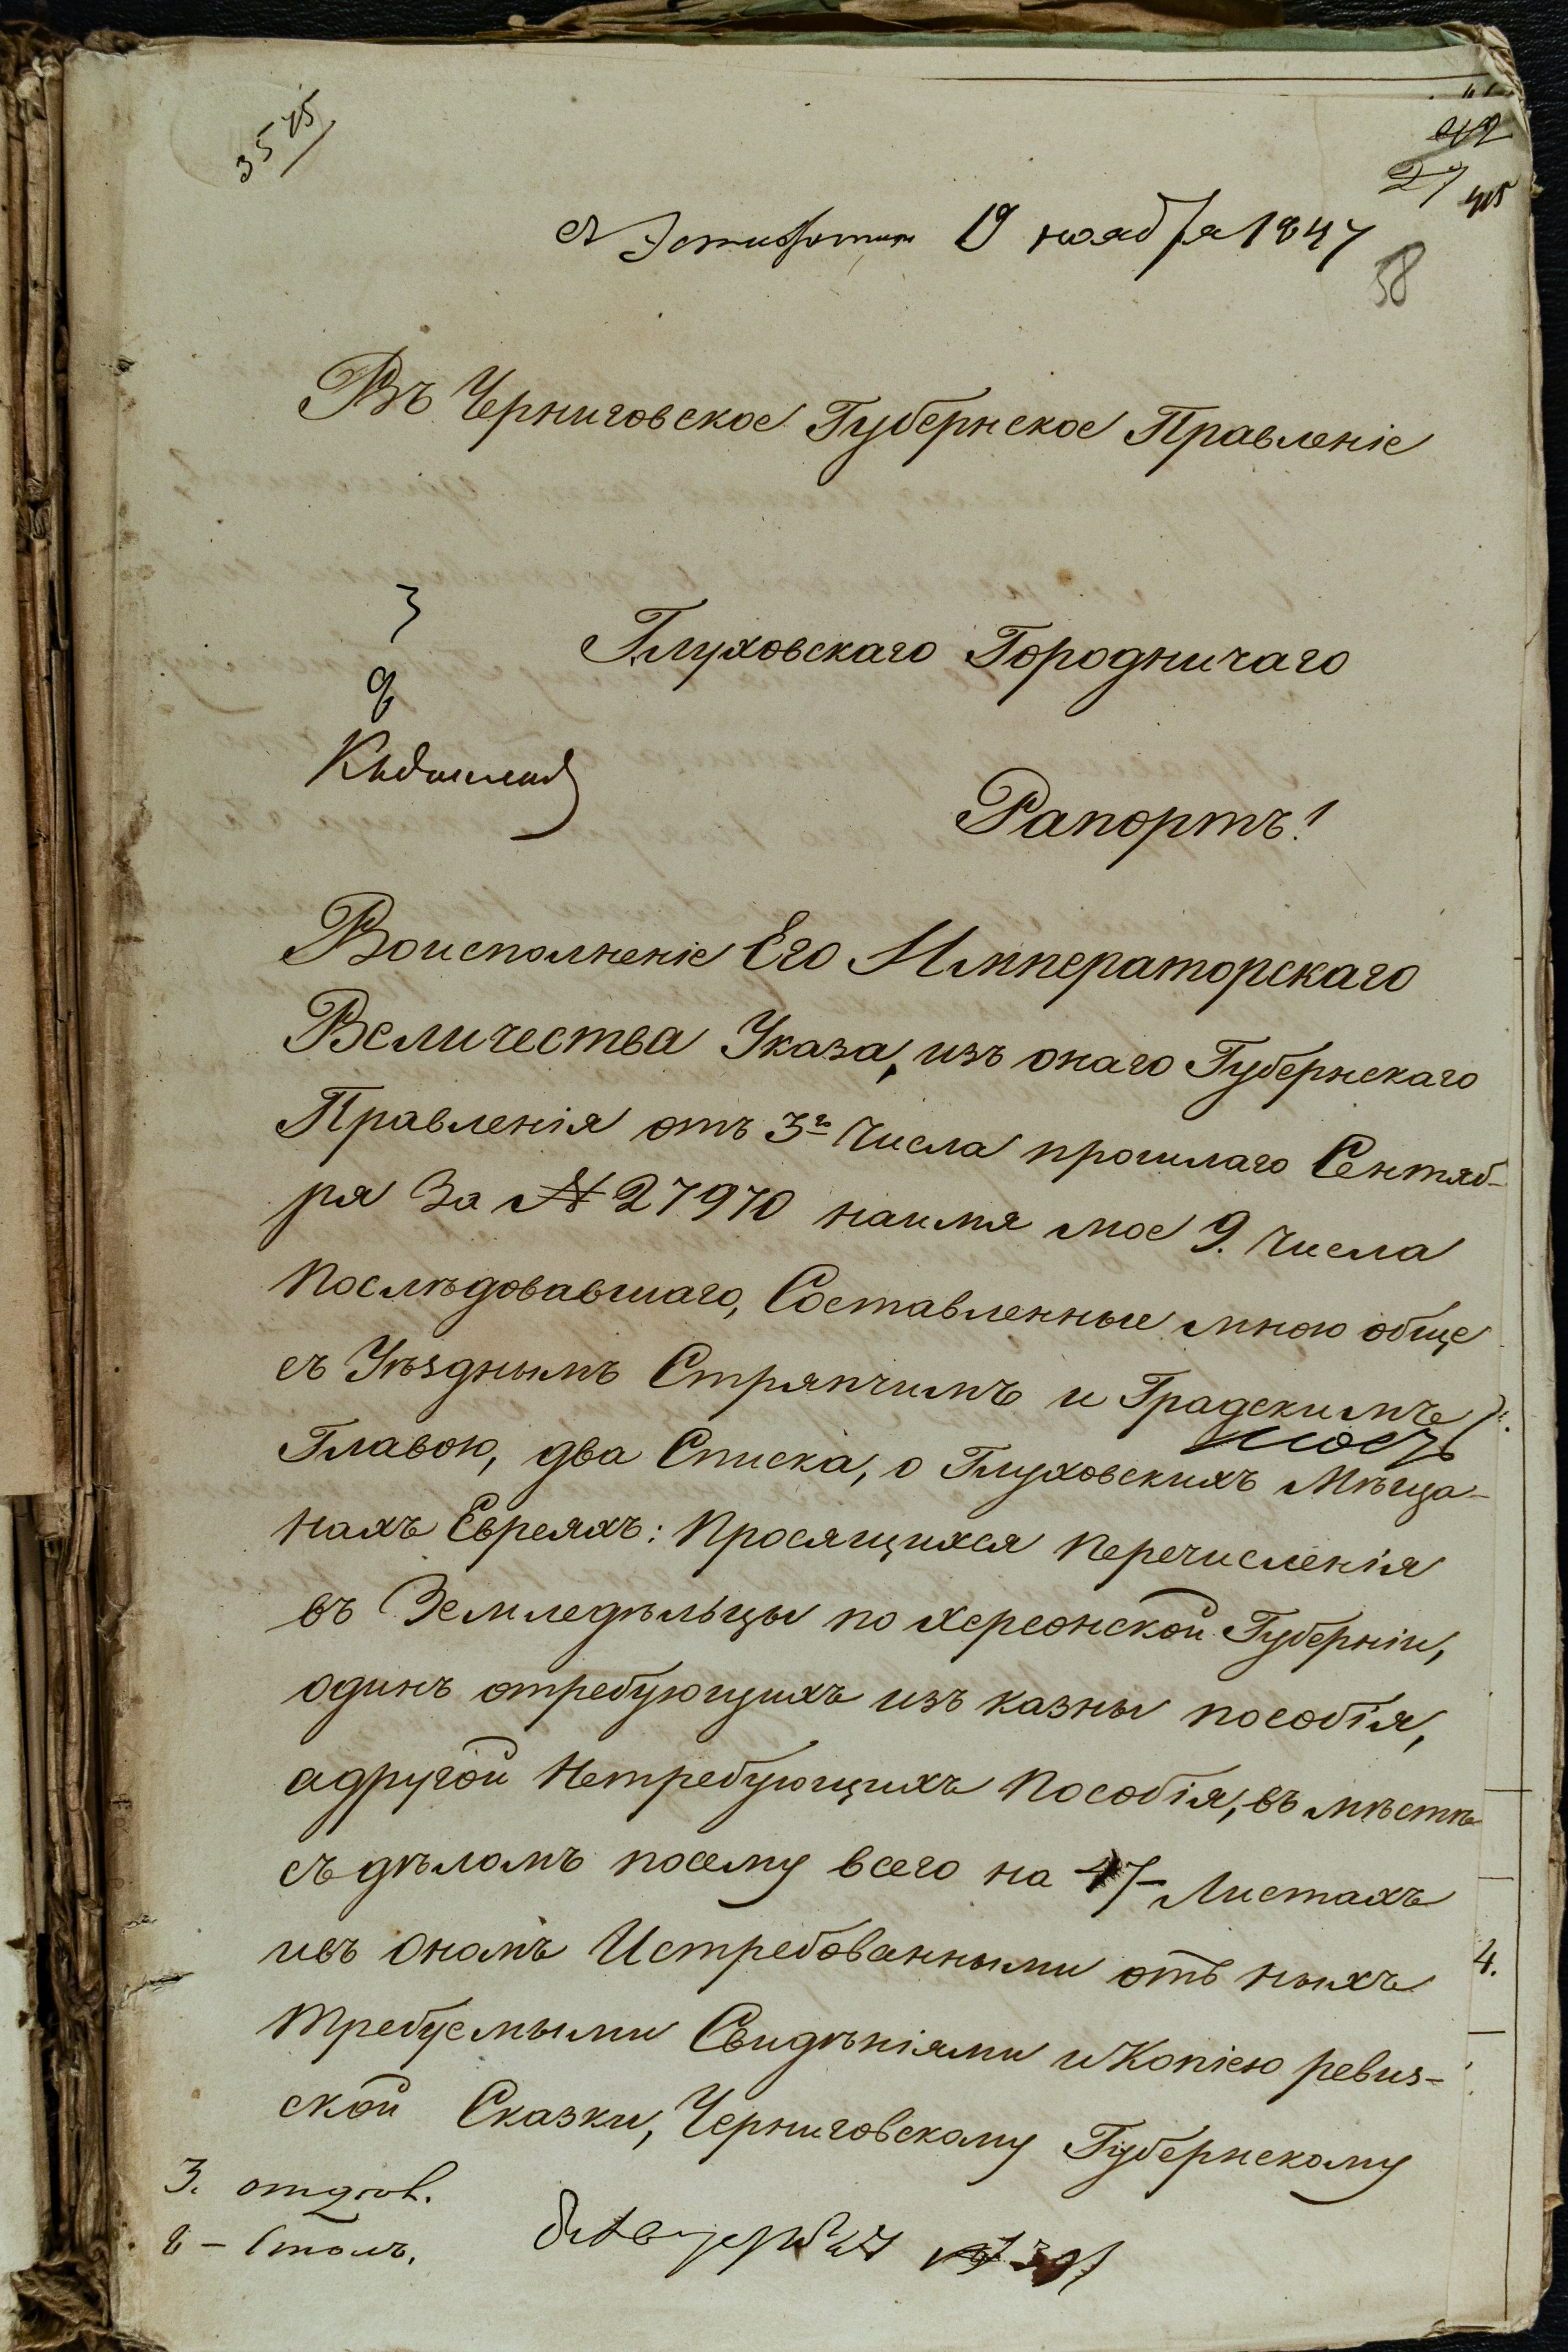 3575
42
27
45
19 ноября 1847
58
Въ Черниговское Губернское Правленіе
3
Глуховскаго Городничаго
8
Къ
Рапортъ!
Воисполненіе Его Императорскаго
Величества Указа, изъ онаго Губернскаго
Правленія отъ 3го Числа прошлаго Сентяб-
ря За № 27970 наимя мое 9. Числа
Послѣдовавшаго, Составленные мною обще
съ Уѣзднымъ Стряпчимъ и Градскимъ
Главою, два Списка, о Глуховскихъ Мѣща-
нахъ Евреяхъ: Просящихся перечисленія
въ Земледѣльцы по Херсонской Губерніи,
одинъ отребующихъ изъ казны пособія,
адругой Нетребующихъ Пособія, въ мѣстѣ
съ дѣломъ посему всего на 47 Листахъ
ивъ ономъ Истребованными отъ ныхъ
Требуемыми Свидѣніями иКопіею ревиз-
ской Сказки, Черниговскому Губернскому
4.
3.
8 – Столъ.